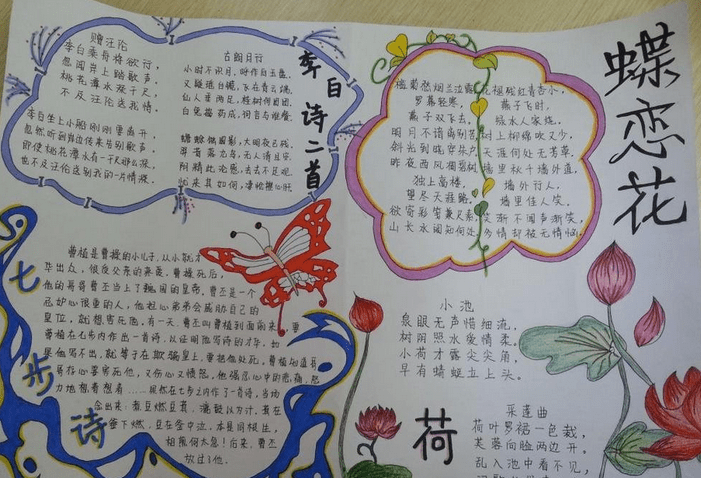 赠汪伦
李白乘舟将欲行,
忽闻岸上踏歌声。
桃花潭水深千尺,
不及汪伦送我情。
李白坐上小船刚刚要离开,
忽然听到岸边传来告别歌声。
即使桃花潭水有一千尺那么深,
也不及汪伦送别我的一片情深。
古朗月行
小时不识月,呼作白玉盘。
又疑瑶台镜,飞在青云端。
仙人垂两足,桂树何团团。
白兔捣药成,问言与谁餐。
蟾蜍蚀圆影,大明夜已残。
羿昔落九乌,天人清且安。
阴精此沦惑,去去不足观。
忧来其如何,凄怆摧心肝
李白诗二首
蝶恋花
槛菊愁烟兰泣露
罗幕轻寒,
燕子双飞去。
明月不谙离别苦
斜光到晓穿朱户
昨夜西风凋碧树
独上高楼,
望尽天涯路。
欲寄彩笺兼尺素
山长水阔知何处
花褪残红青杏小,
燕子飞时,
绿水人家绕。
枝上柳绵吹又少,
天涯何处无芳草。
墙里秋千墙外道,
墙外行人,
墙里佳人笑。
笑渐不闻声渐笑,
多情却被无情恼。
七步诗
曹植是曹操的小儿子,从小就才
华出众,很受父亲的来爱。曹操死后,
他的哥哥曹丕当上了魏国的皇帝。曹丕是一个
忌妒心很重的人,他担心弟弟会威胁自己的
皇位,就想害死他。有一天,曹丕叫曹植到面前来,要
曹植在七步内作出一首诗,以证明他写诗的才华。如
果他写不出,就等于在欺骗皇上,要把他处死。曹植知道哥
哥存心要害死他,又伤心又愤怒。他强忍心中的悲痛,努
力地想着想着……果然在七步之内作了一首诗,当场
念出来:煮豆燃豆萁,漉豉以为汁。萁在
釜下燃,豆在釜中泣。本是同根生,
相煎何太急!后来,曹丕
放过了他。
小池
泉眼无声惜细流,
树阴照水爱情柔。
小荷才露尖尖角,
早有蜻蜓立上头。
荷
采莲曲
荷叶罗裙一色裁,
芙蓉向脸两边开。
乱入池中看不见,